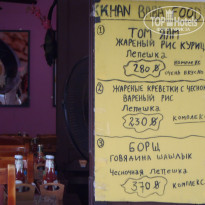 KHAN BABA FOOD
① ТОМ ЯМ
ЖАРЕНЫЙ РИС КУРИЦ
Лепешка
280 ฿
КОМПЛЕКС
ОЧЕНЬ ВКУСНО
② ЖАРЕНЫЕ КРЕВЕТКИ С ЧЕСНОК
ВАРЕНЫЙ РИС
Лепешка
230 ฿
КОМПЛЕКС
③ БОРЩ
ГОВЯДИНА ШАШЛЫК
Чесночная лепешка
370 ฿
КОМПЛЕКС
TopHotels